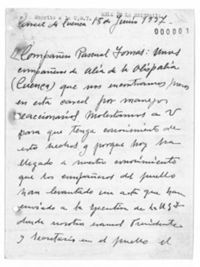 Carcel de Cuenca 15 de Junio 1937.
000001
Compañero Pascual Tomas: Unos
compañeros de
(Cuenca) que nos encontramos presos
en esta carcel por manejos
reaccionarios Molestamos a V
para que tenga conocimiento de
estos hechos y porque hoy ha
llegado a nuestro conocimiento
que los compañeros del pueblo
han levantado un acta que han
enviado a la Ejecutiva de la U G T
donde nosotros eramos Presidente
y secretario en el pueblo el